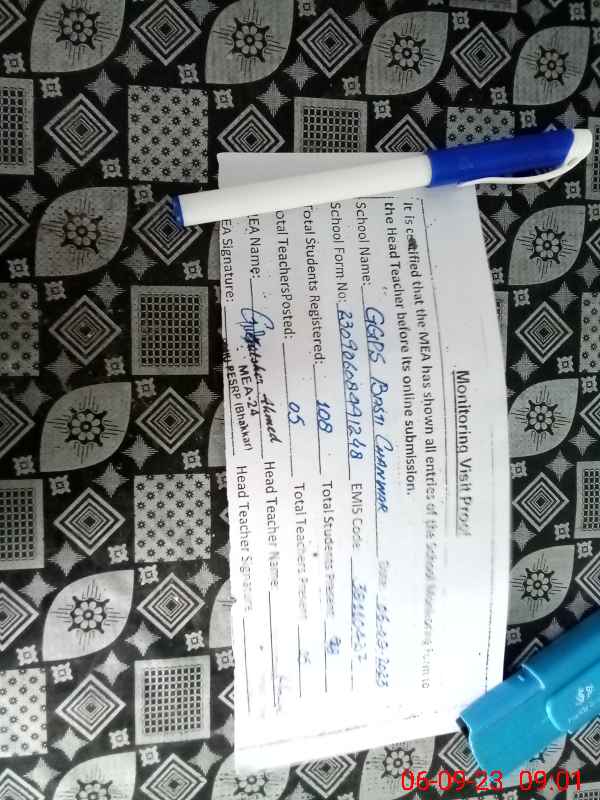 Monitoring Visit Proof
It is certified that the MEA has shown all entries of the School Monitoring Form to
the Head Teacher before its online submission.
School Name: GGPS BASTI CHANNAR Date: 05-09-2023
School Form No: 230906084991248 EMIS Code
Total Students Registered: 108 Total Students Present
otal TeachersPosted: 05 Total Teachers Present 05
EA Name: Ahmed Head Teacher Name:
MEA-24
EA Signature: PESRP (Bhakkar) Head Teacher Signature
06-09-23 09:01